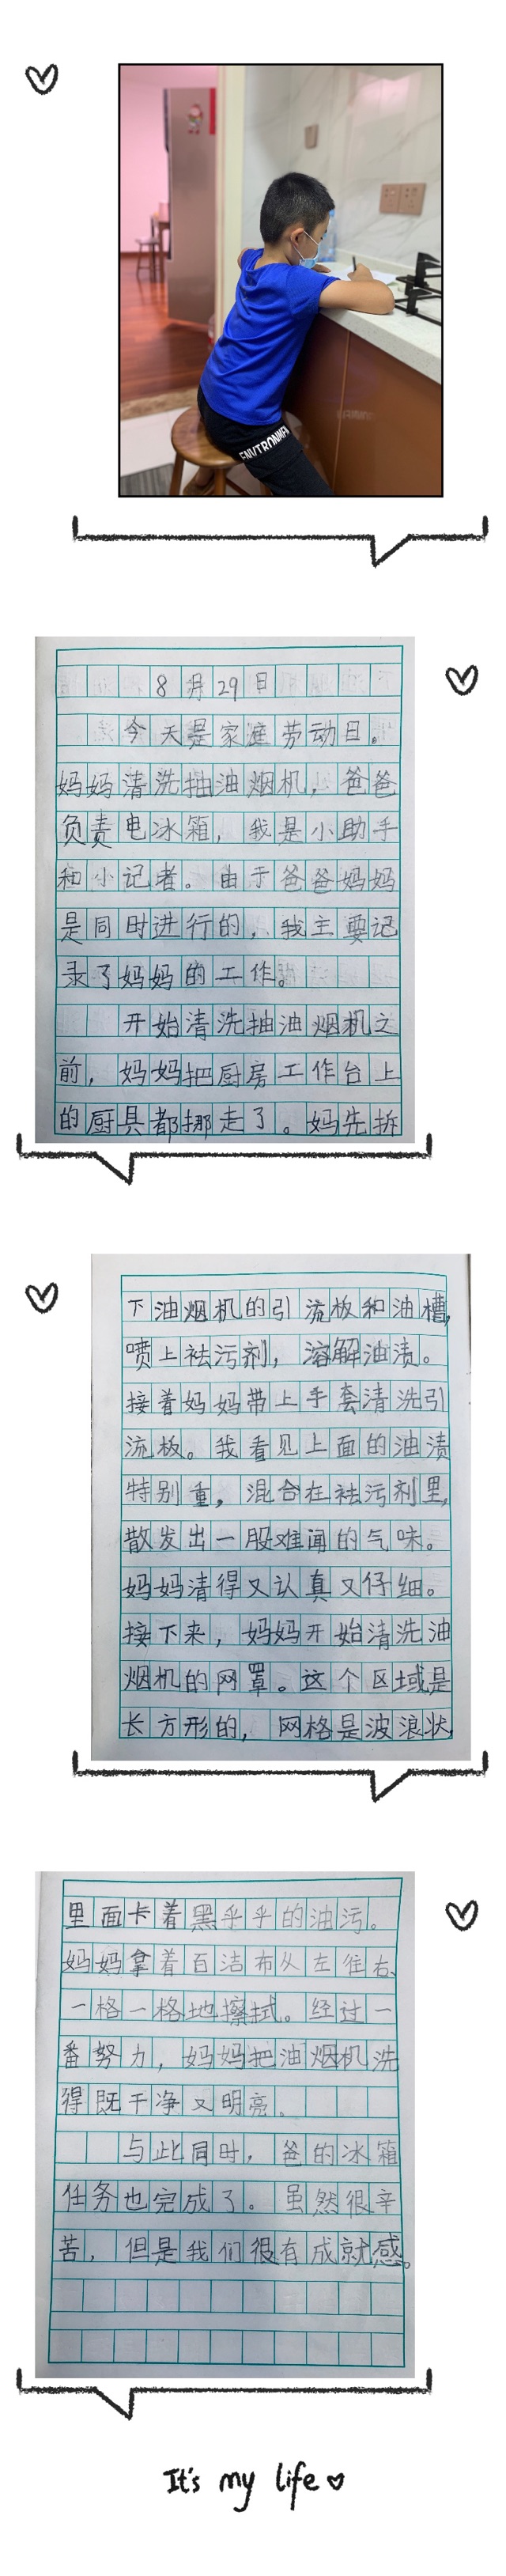 ENVIRONMEN
8月29日
今天是家庭劳动日。
妈妈清洗抽油烟机，爸爸
负责电冰箱，我是小助手
和小记者。由于爸爸妈妈
是同时进行的，我主要记
录了妈妈的工作。
开始清洗抽油烟机之
前，妈妈把厨房工作台上
的厨具都挪走了。妈先拆
下油烟机的引流板和油槽，
喷上祛污剂，溶解油渍。
接着妈妈带上手套清洗引
流板。我看见上面的油渍
特别重，混合在祛污剂里，
散发出一股难闻的气味。
妈妈清得又认真又仔细。
接下来，妈妈开始清洗油
烟机的网罩。这个区域是
长方形的，网格是波浪状，
里面卡着黑乎乎的油污。
妈妈拿着百洁布从左往右、
一格一格地擦拭。经过一
番努力，妈妈把油烟机洗
得既干净又明亮。
与此同时，爸的冰箱
任务也完成了。虽然很辛
苦，但是我们很有成就感。
It's my life